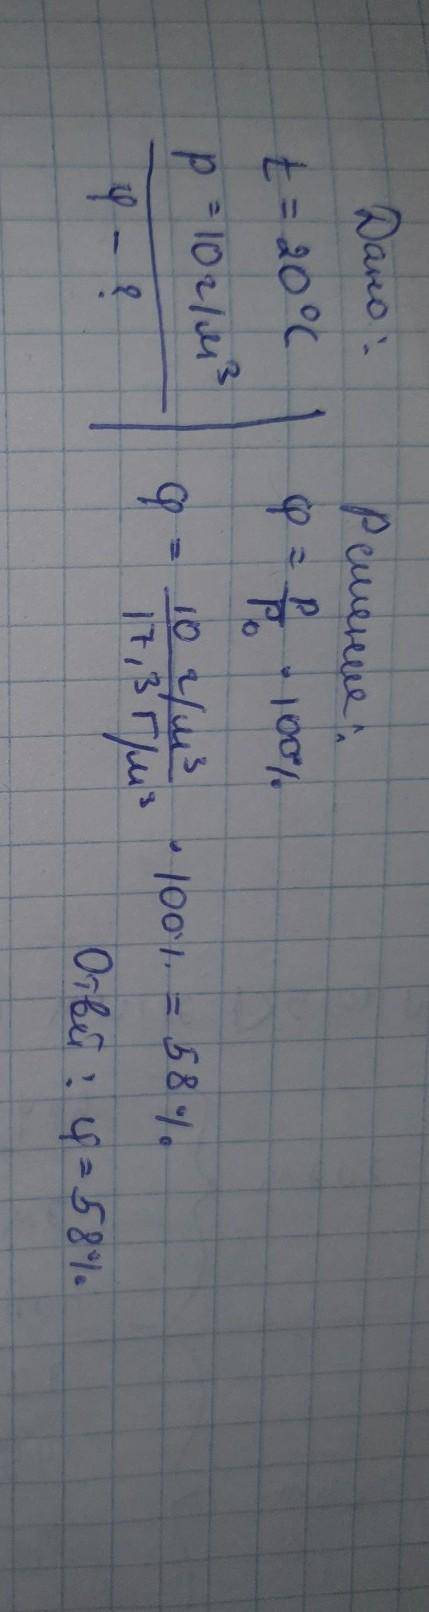 Дано:
t = 20°C
p = 10 г/м³
φ - ?
Решение:
φ = p/p₀ · 100%
φ = 10 г/м³ / 17,3 г/м³ · 100% = 58%
Ответ: φ = 58%